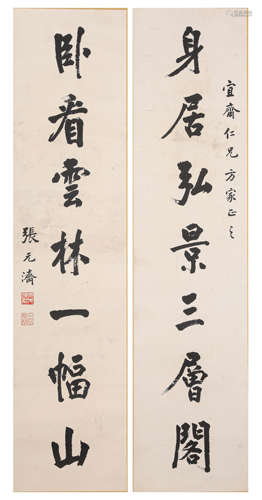 宜齋仁兄方家正之
身居弘景三層閣
卧看雲林一幅山
張元濟